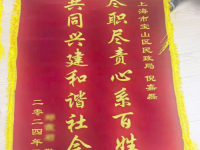 上海市宝山区民政局 倪嘉磊
尽职尽责心系百姓
共同兴建和谐社会
二零二四年